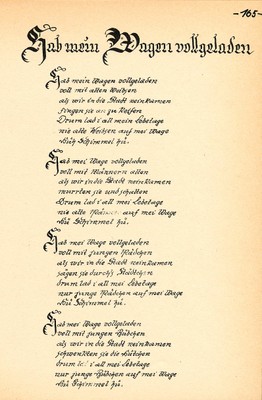 - 165 -
Hab mein Wagen vollgeladen
Hab mein Wagen vollgeladen
voll mit alten Weibsen
als wir in die Stadt neinkamen
fingen sie an zu keifen
Drum lad i all mein Lebetage
nie alte Weibsen auf mei Wage
Hüh Schimmel hü.
Hab mei Wage vollgeladen
voll mit Männern alten
als wir in die Stadt neinkamen
murrten sie und schalten
Drum lad i all mei Lebetage
nie alte Männer auf mei Wage
Hü Schimmel hü.
Hab mei Wage vollgeladen
voll mit jungen Mädchen
als wir in die Stadt neinkamen
sagen sie durch's Städtchen
drum lad i all mei Lebetage
nur junge Mädchen auf mei Wage
Hü Schimmel hü.
Hab mei Wage vollgeladen
voll mit jungen
als wir in die Stadt neinkamen
schwenkten sie die Hütchen
drum lad i all mei Lebetage
nur junge auf mei Wage
Hü Schimmel hü.